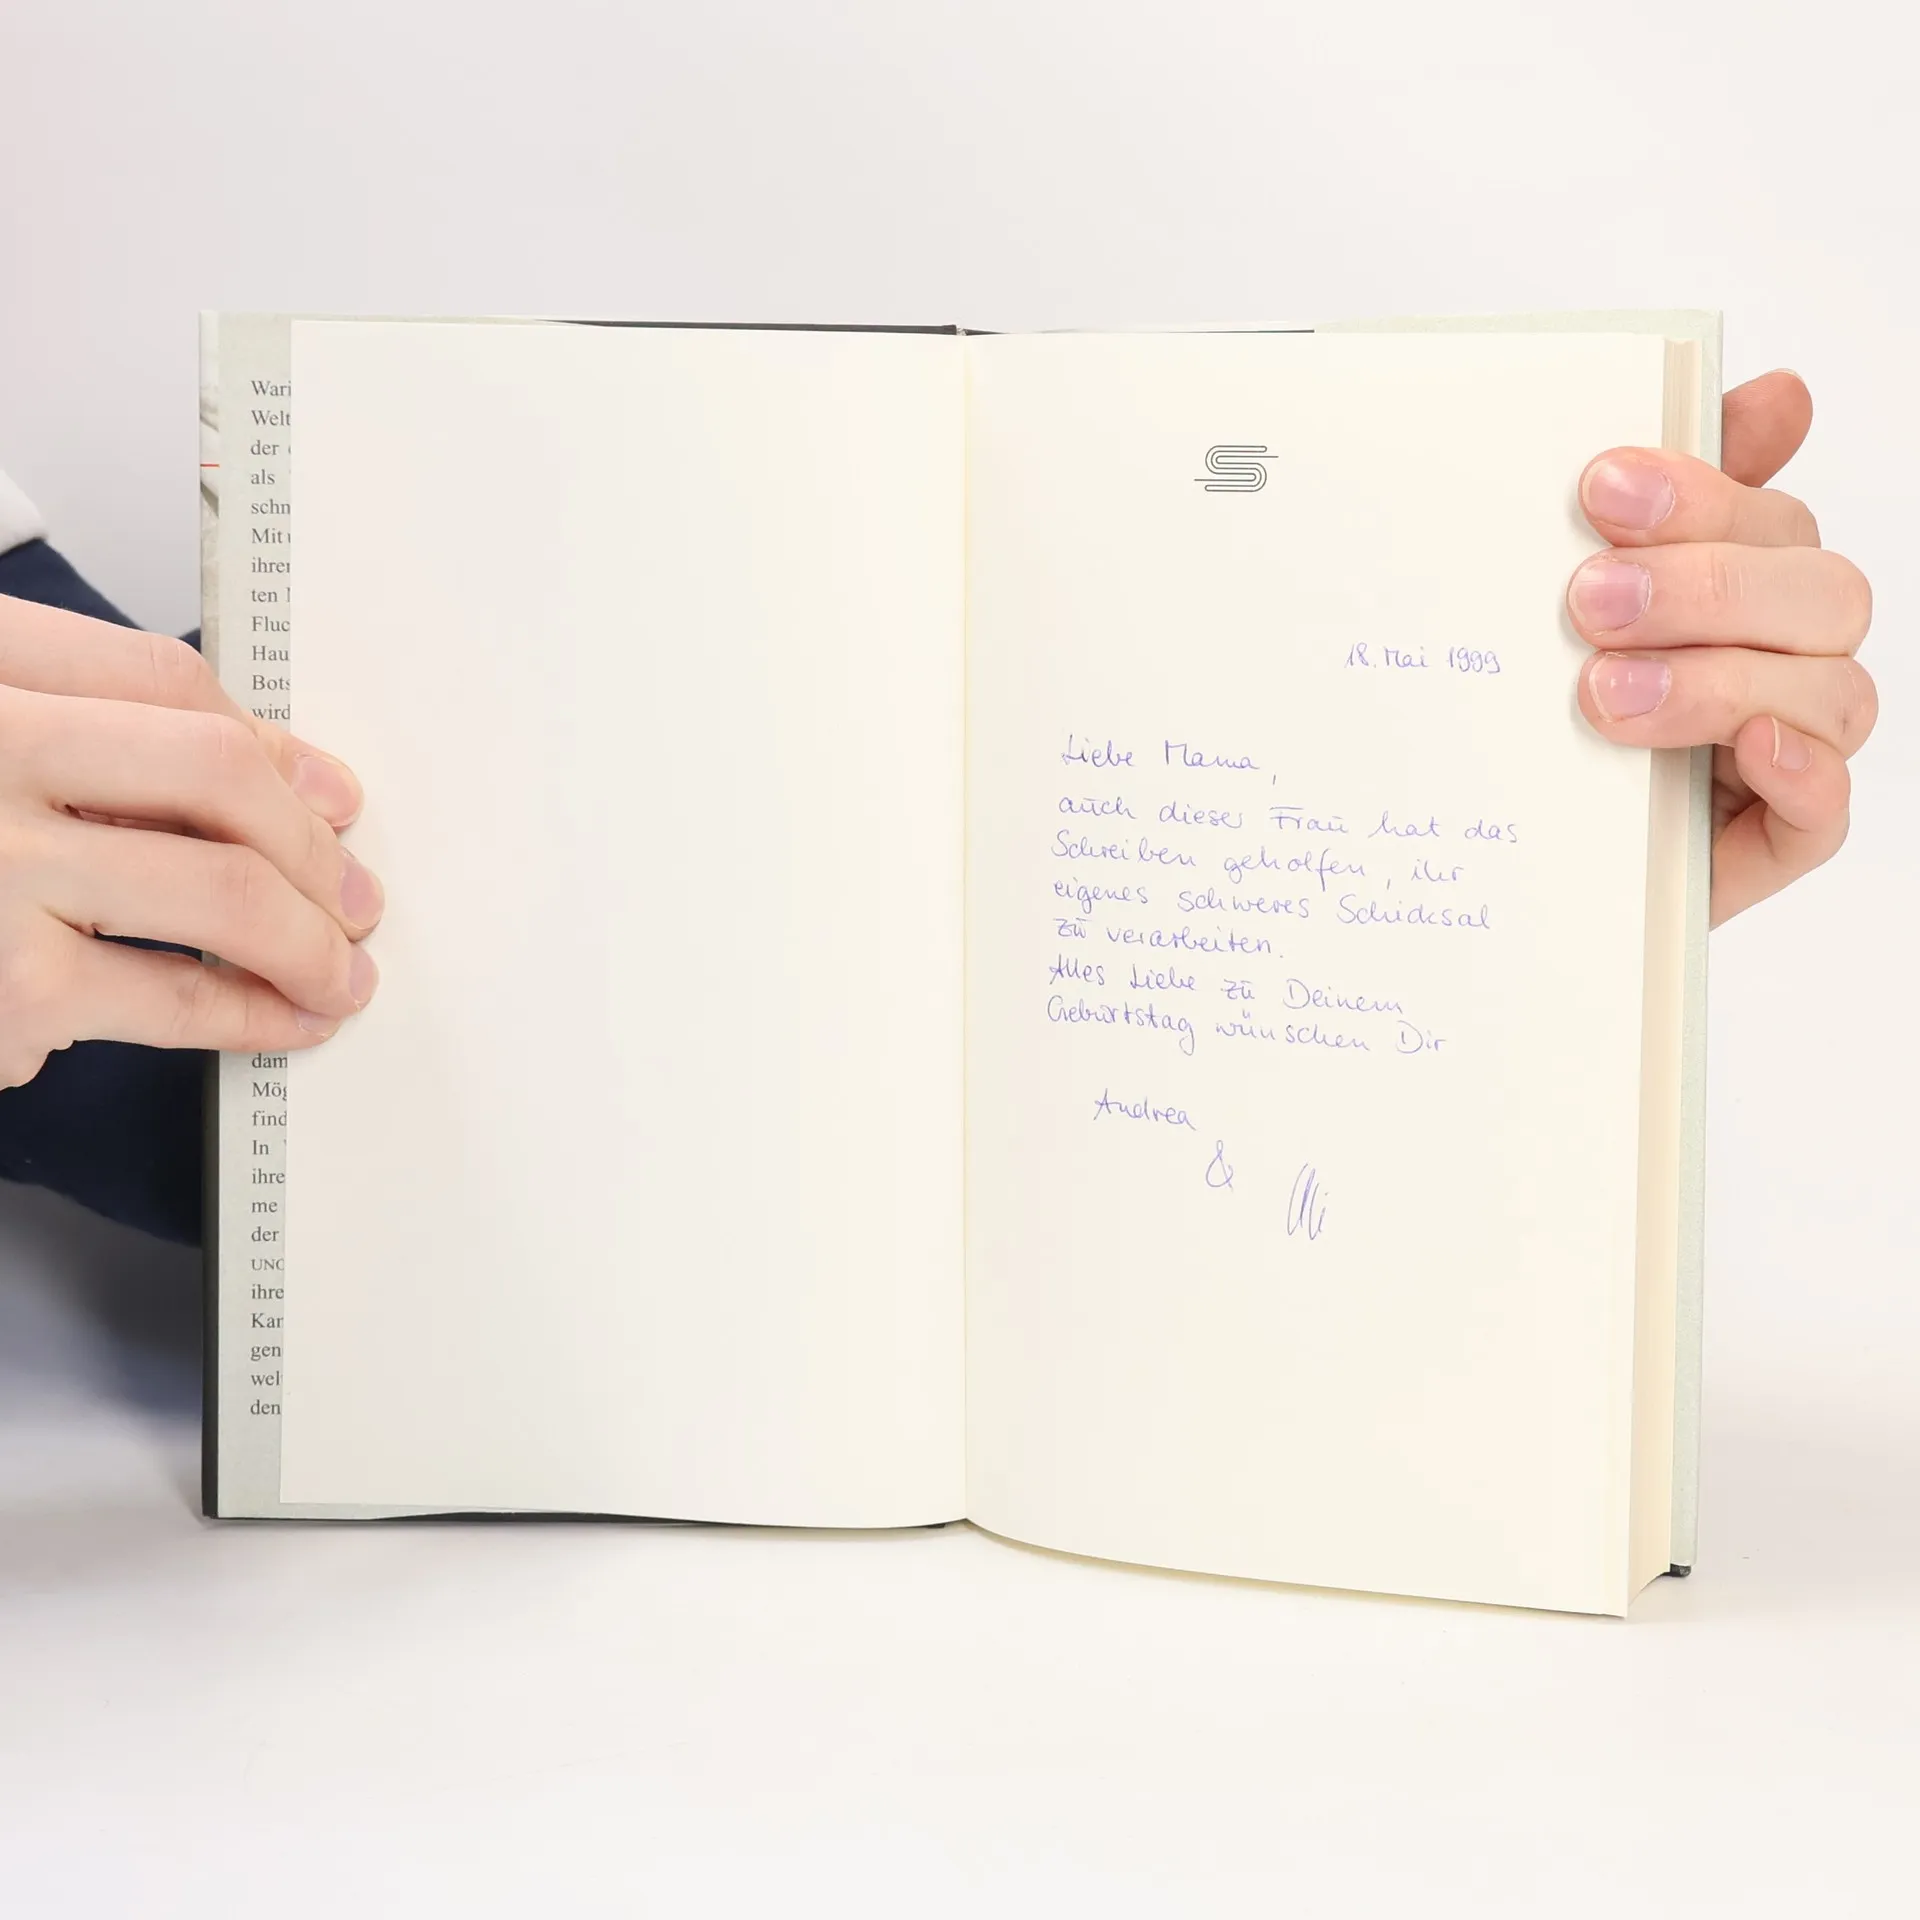 Wari
Welt
der
als
schn
Mit
ihrer
ten
Fluc
Hau
Bots
wird
dam
Mög
find
In
ihre
me
der
UNO
ihre
Kar
gen
wel
den
S
18. Mai 1999
Liebe Mama,
auch dieser Frau hat das
Schreiben geholfen, ihr
eigenes schweres Schicksal
zu verarbeiten.
Alles Liebe zu Deinem
Geburtstag wünschen Dir
Andrea
&